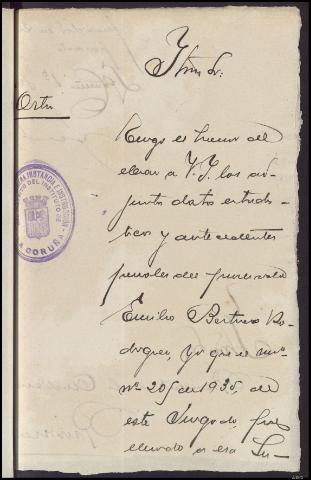 Iltmo. Sr:
Orts
Tengo el honor de
elevar a V.I. los ad-
juntos datos estadis-
ticos y antecedentes
penales del procesado
Emilio Bertuxo Ro-
driguez, ya que el
nº 205 de 1935, de
este Juzgado, fue
elevado a esa Su-
INSTANCIA E INSTRUCCION
CORUÑA